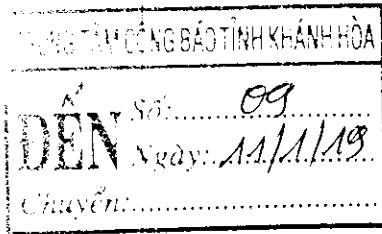 TRUNG TÂM CÔNG BÁO TỈNH KHÁNH HÒA
ĐẾN
Số:..........09..........
Ngày:..11/1/19..
Chuyển:..............................